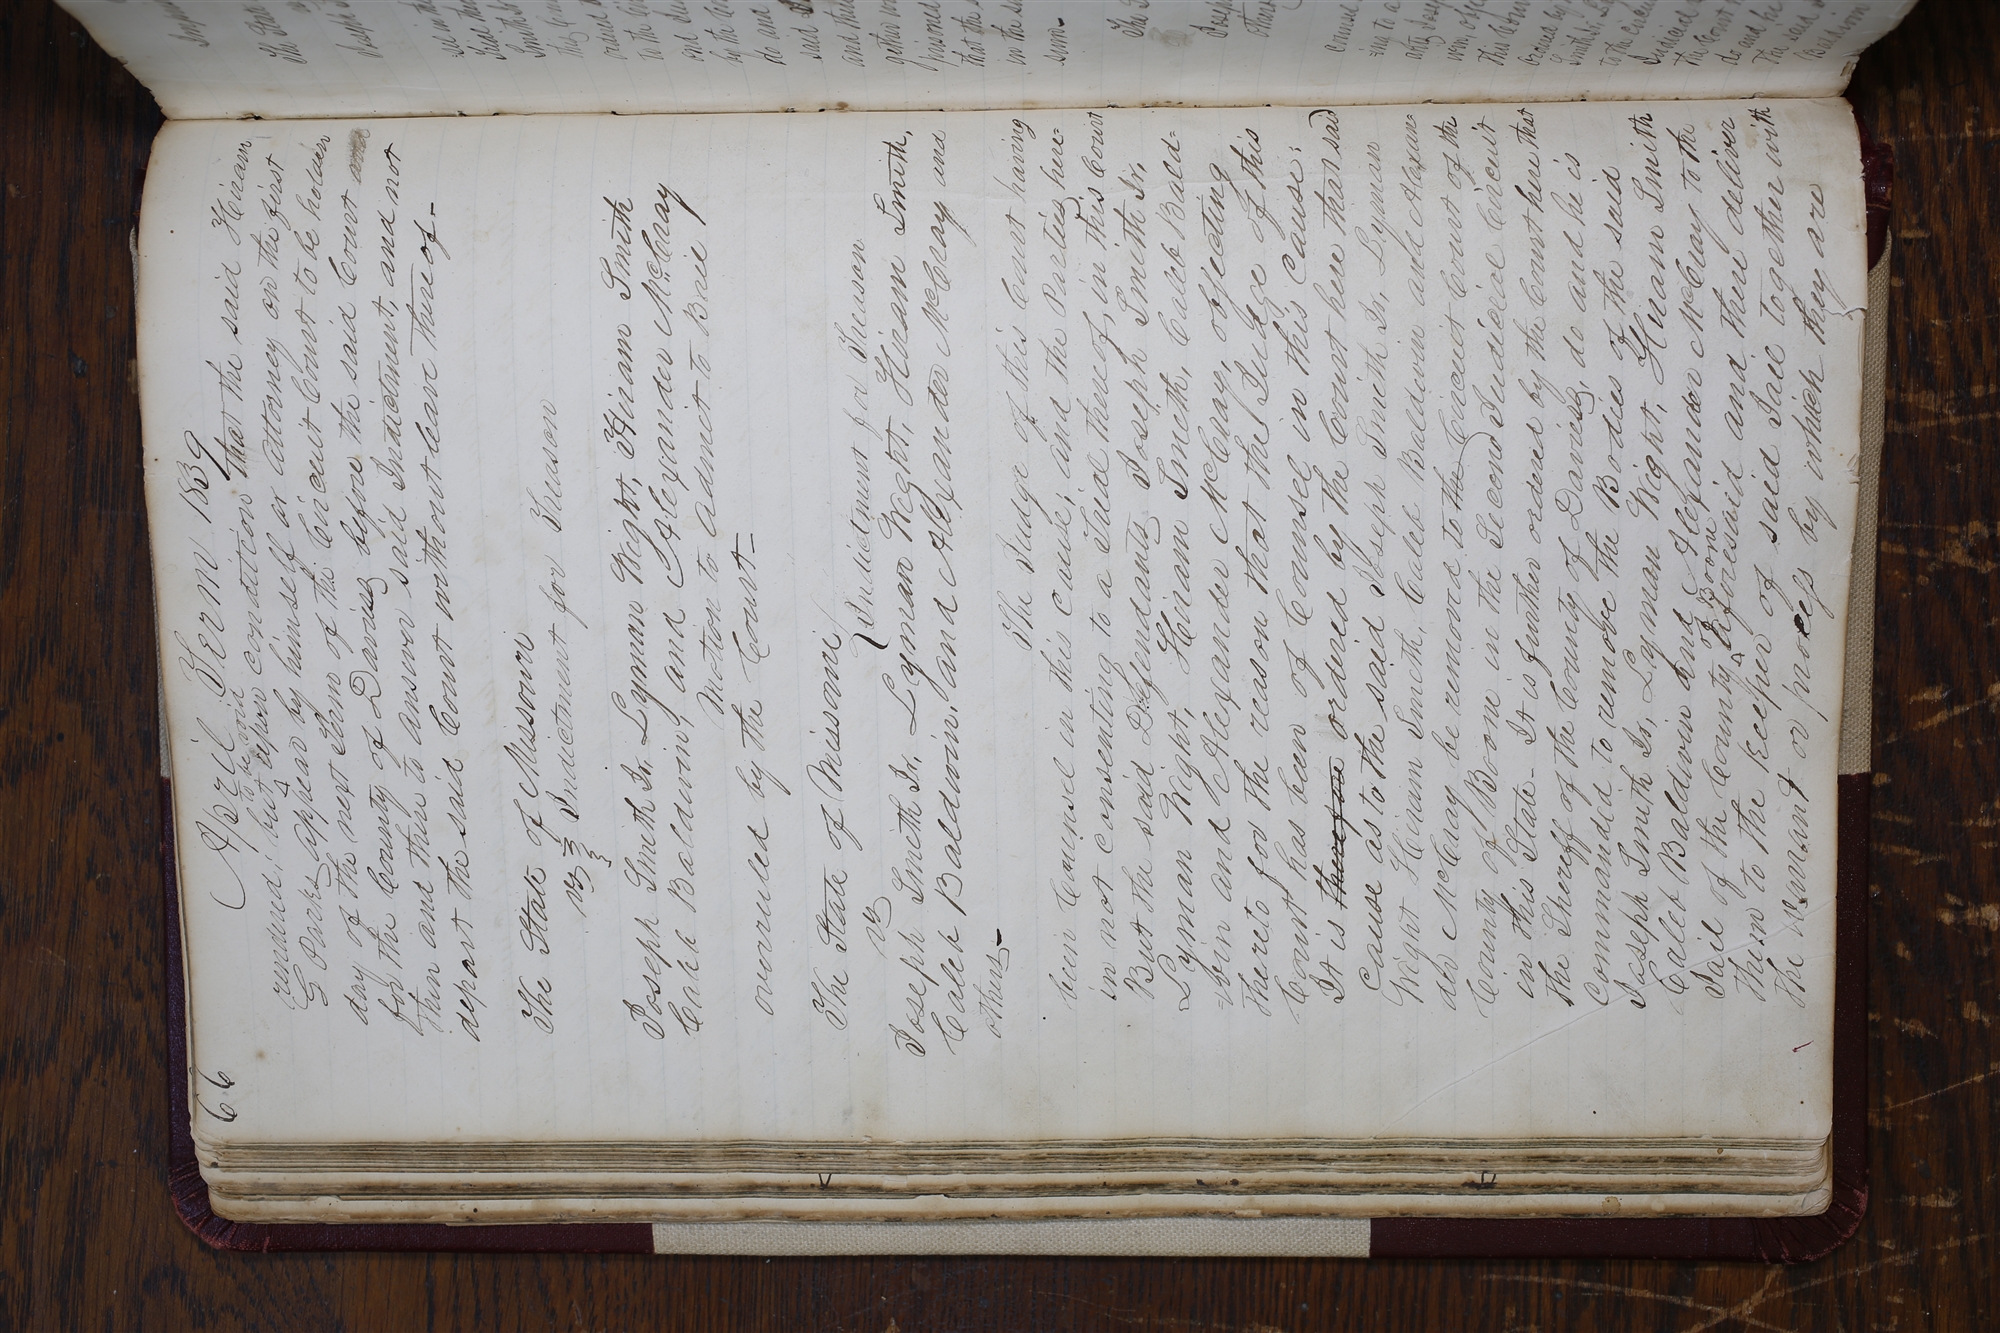 66
April Term 1839
rendered, but to be void upon condition that the said Hiram
G Parks appear by himself or attorney on the first
day of the next Term of the Circuit Court to be holden
for the County of Daviess before the said Court and
then and there to answer said Indictment, and not
depart the said Court without leave thereof-
The State of Missouri
vs Indictment for Treason
Joseph Smith Jr, Lyman Wight, Hiram Smith
Caleb Baldwin, and Alexander McCray
Motion to Admit to Bail
overruled by the Court-
The State of Missouri
vs Indictment for Treason
Joseph Smith Jr. Lyman Wight, Hiram Smith,
Caleb Baldwin, and Alexander McCray and
others-
The Judge of this Court having
been Counsel in this Cause, and the Parties here=
in not Consenting to a Trial thereof, in this Court
But the said Defendants Joseph Smith Jr,
Lyman Wight, Hiram Smith, Caleb Bald=
=win and Alexander McCray, objecting
thereto for the reason that the Judge of this
Court has been of Counsel in this Cause;
It is therefore ordered by the Court here that said
Cause as to the said Joseph Smith Jr, Lyman
Wight Hiram Smith, Caleb Baldwin and Alexan=
der McCray be removed to the Circuit Court of the
County of Boone in the Second Judicial Circuit
in this State- It is further ordered by the Court here that
the Sheriff of the County of Daviess, do and he is
Commanded to remove the Bodies of the said
Joseph Smith Jr, Lyman Wight, Hiram Smith
Caleb Baldwin and Alexander McCray to the
Jail of the County of Boone aforesaid and there deliver
them to the Keeper of said Jail together with
the Warrant or process by which they are